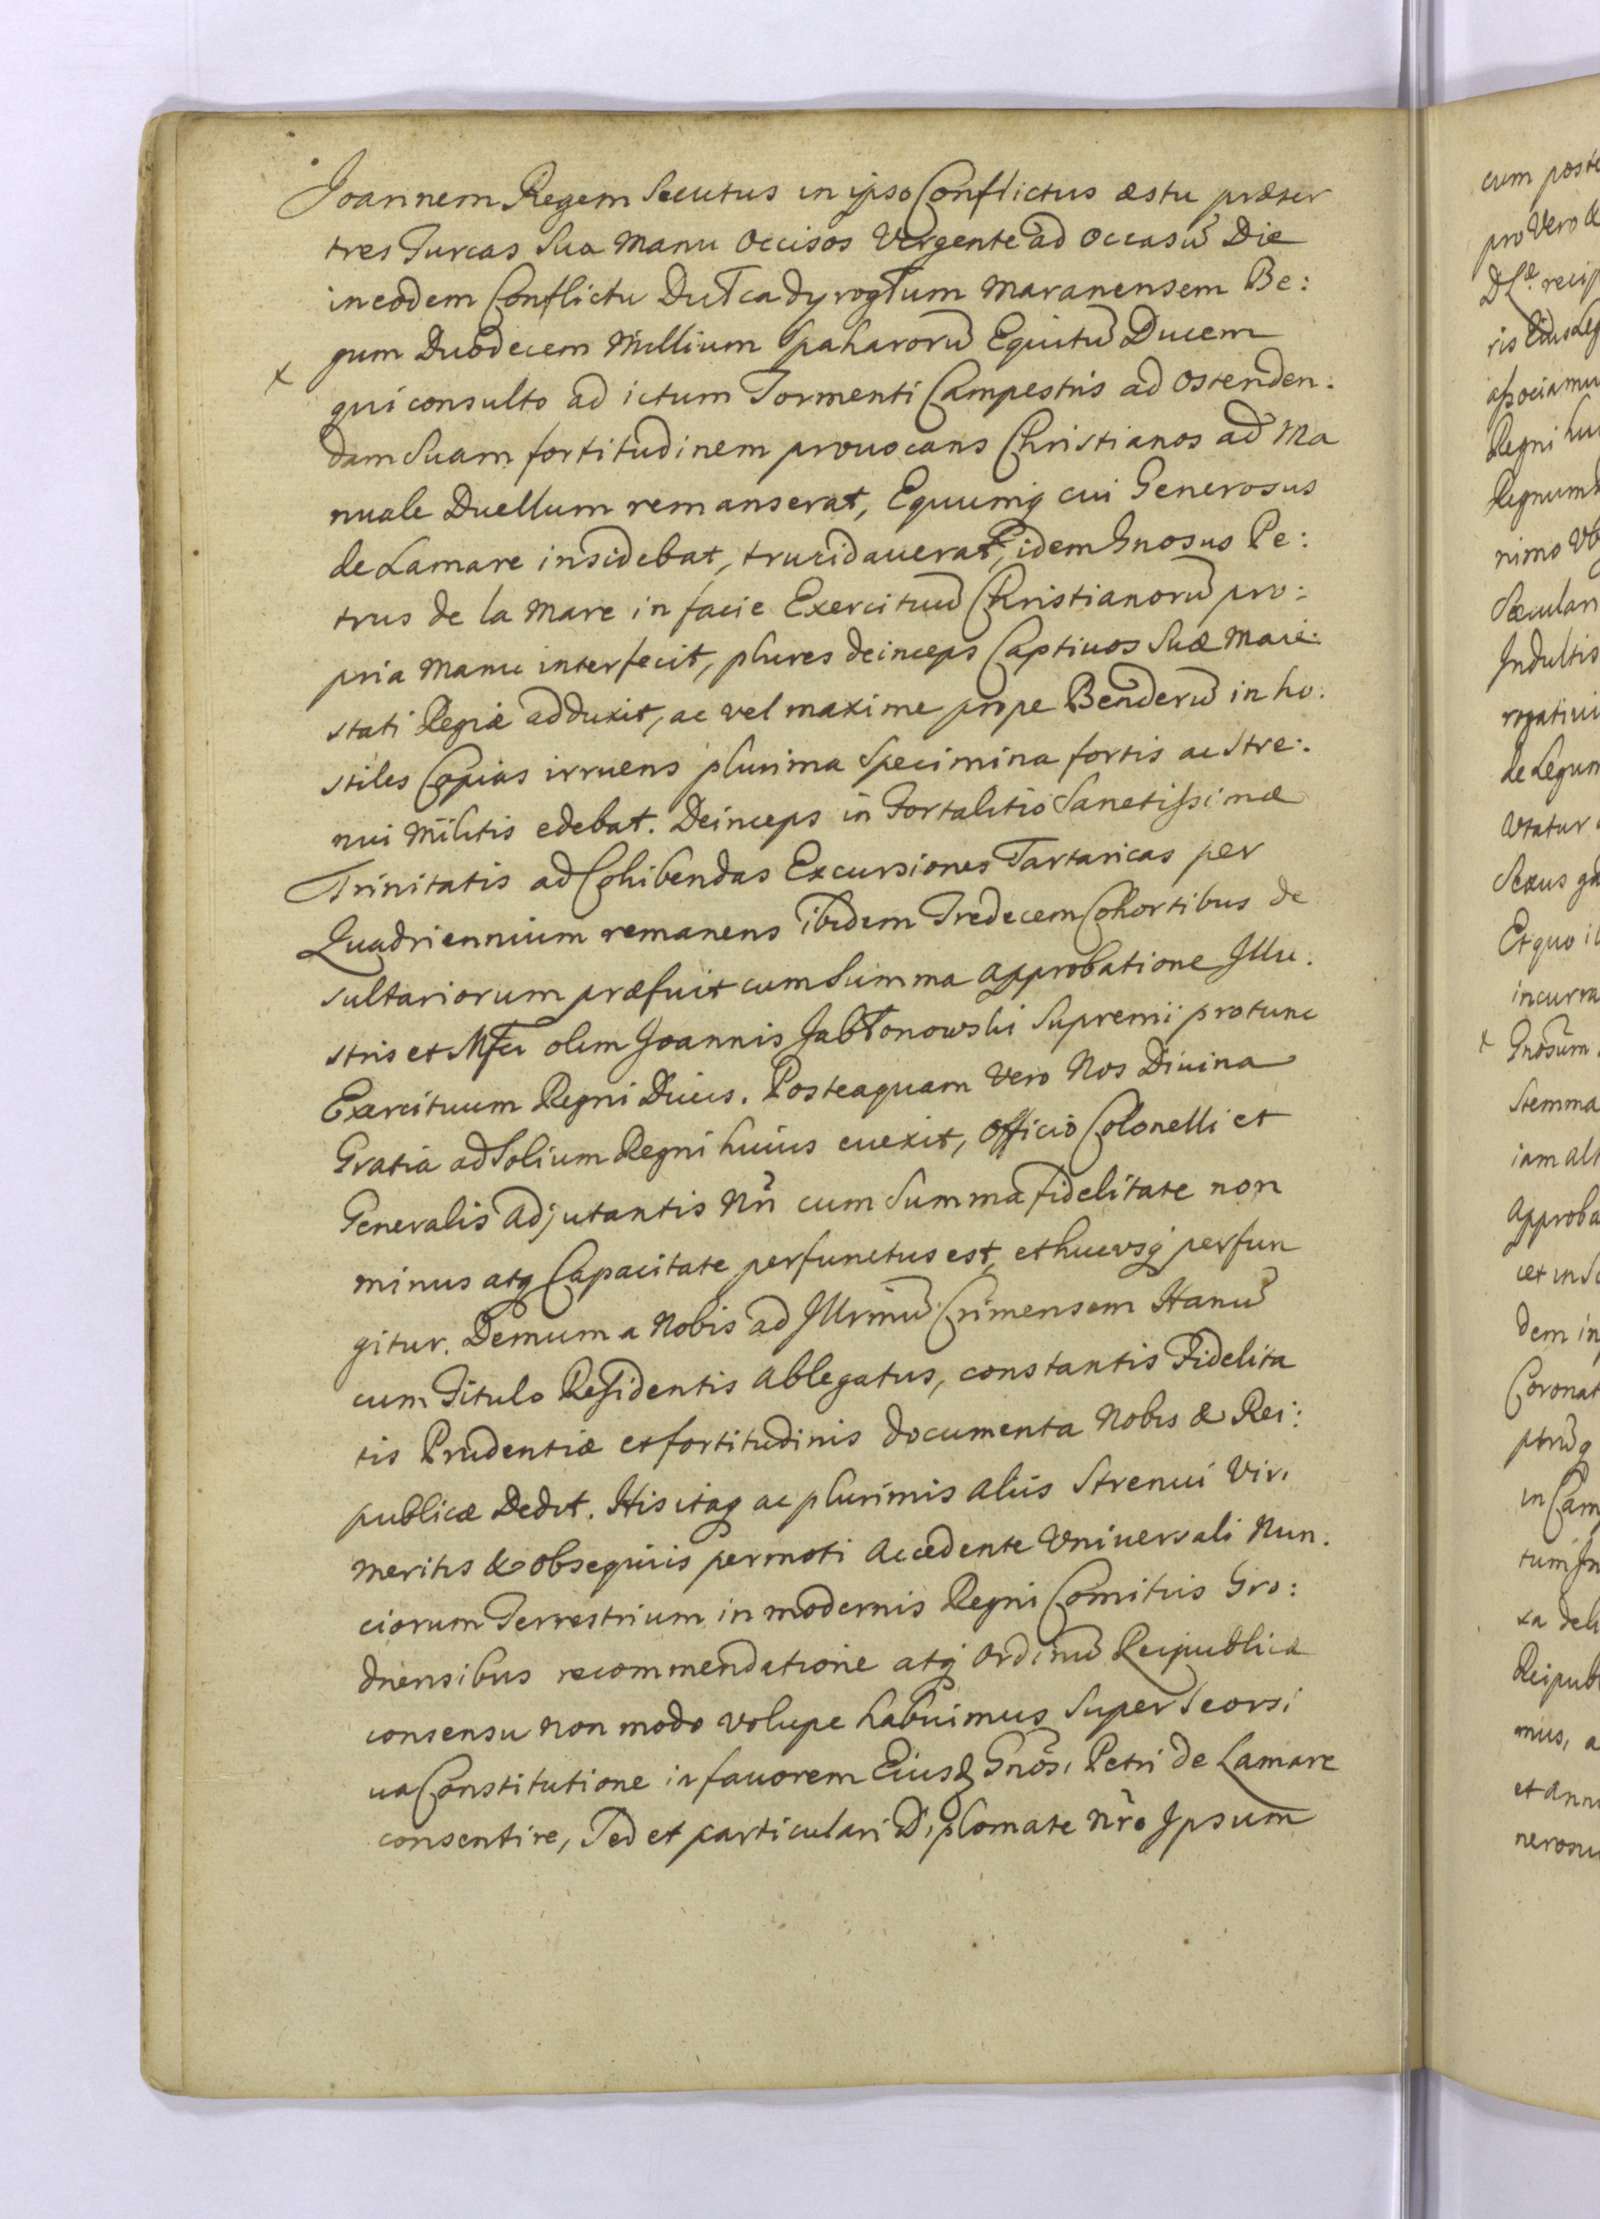 Joannem Regem Secutus in ipso Conflictus æstu præter
tres Turcas Sua Manu Occisos Vergente ad Occasũ Die
in eodem Conflictu Maranensem Be:
gum Duodecem Millium Spaharorũ Equitũ Ducem
x
qui consulto ad ictum Tormenti Campestris ad Ostenden:
dam Suam fortitudinem prouocans Christianos ad Ma
nuale Duellum remanserat, Equumq cui Generosus
de Lamare insidebat, trucidauerat, idem Gnosus Pe:
trus de la Mare in facie Exercituũ Christianorũ pro:
pria Manu interfecit, plures deinceps Captiuos Suæ Maie:
stati Regiæ adduxit, ac vel maxime prope Benderũ in ho:
stiles Copias irruens plurima Specimina fortis ac Stre:
nui Militis edebat. Deinceps in Fortalitio Sanctissimæ
Trinitatis ad Cohibendas Excursiones Tartaricas per
Quadriennium remanens ibidem Tredecem Cohortibus de
sultariorum præfuit cum Summa Approbatione Illu:
stris et Mfci olim Joannis Jabłonowski Supremi protunc
Exercituum Regni Ducis. Posteaquam Vero Nos Diuina
Gratia ad Solium Regni huius euexit, Officio Colonelli et
Generalis Adjutantis Nri cum Summa fidelitate non
minus atq Capacitate perfunctus est, et hucusq perfun
gitur. Demum a Nobis ad Illrmũ Crimensem Hanũ
cum Titulo Residentis Ablegatus, constantis Fidelita
tis Prudentiæ et fortitudinis documenta Nobis & Rei:
publicæ Dedit. His itaq ac plurimis aliis Strenui Viri
Meritis & obsequiis permoti Accedente Vniversali Nun:
ciorum Terrestrium in modernis Regni Comitiis Gro:
dnensibus recommendatione atq Ordinũ Reipublicæ
consensu non modo volupe habuimus Super Seorsi
ua Constitutione in fauorem Eiusd Gnosi Petri de Lamare
consentire, Sed et particulari Diplomate Nro Ipsum